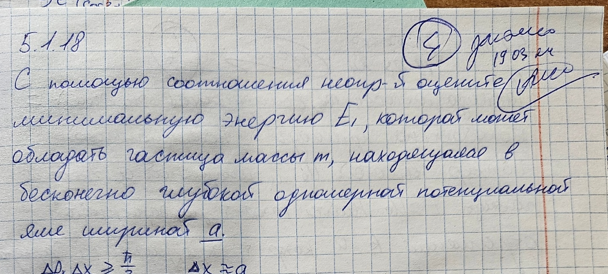 5.1.18
4
19.03.24
С помощью соотношения неопр-й оцените
минимальную энергию E₁, которой может
обладать частица массы m, находящаяся в
бесконечно глубокой одномерной потенциальной
яме шириной a.
Δx ≥ ħ/2 Δx ≈ a